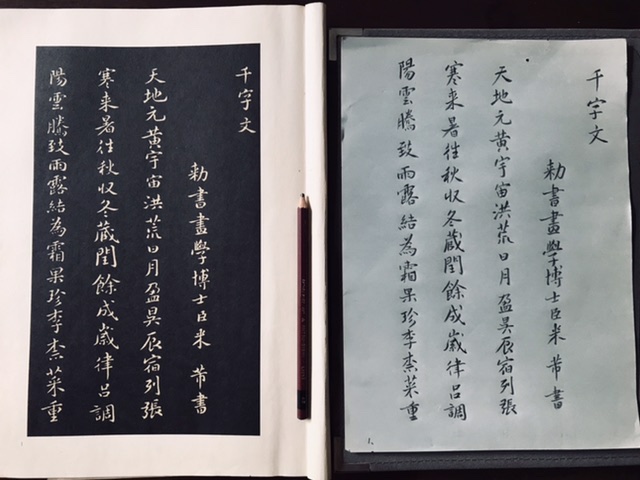 千字文
勅書畫學博士臣米 芾書
天地元黄宇宙洪荒日月盈昃辰宿列張
寒来暑往秋収冬蔵閏餘成歳律呂調
陽雲騰致雨露結為霜果珍李柰菜重
千字文
勅書畫學博士臣米 芾書
天地元黄宇宙洪荒日月盈昃辰宿列張
寒来暑往秋収冬蔵閏餘成歳律呂調
陽雲騰致雨露結為霜果珍李柰菜重
1.